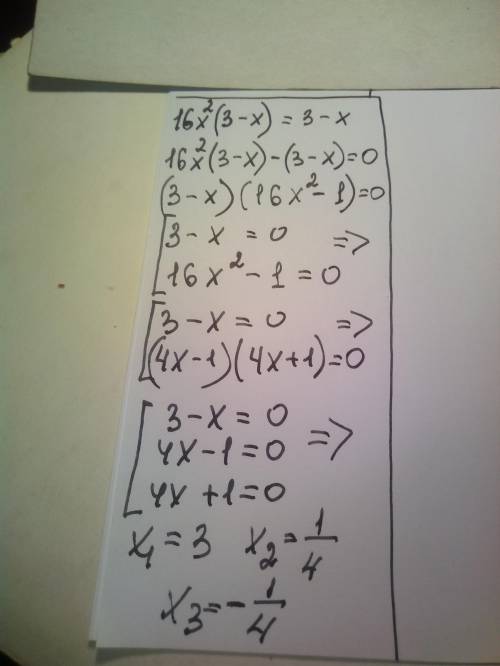 16x²(3-x) = 3-x
16x²(3-x)-(3-x)=0
(3-x)(16x²-1)=0
[3-x = 0 =>
16x²-1=0
[3-x=0 =>
(4x-1)(4x+1)=0
[3-x=0
4x-1=0 =>
4x+1=0
x₁=3 x₂=1/4
x₃=-1/4